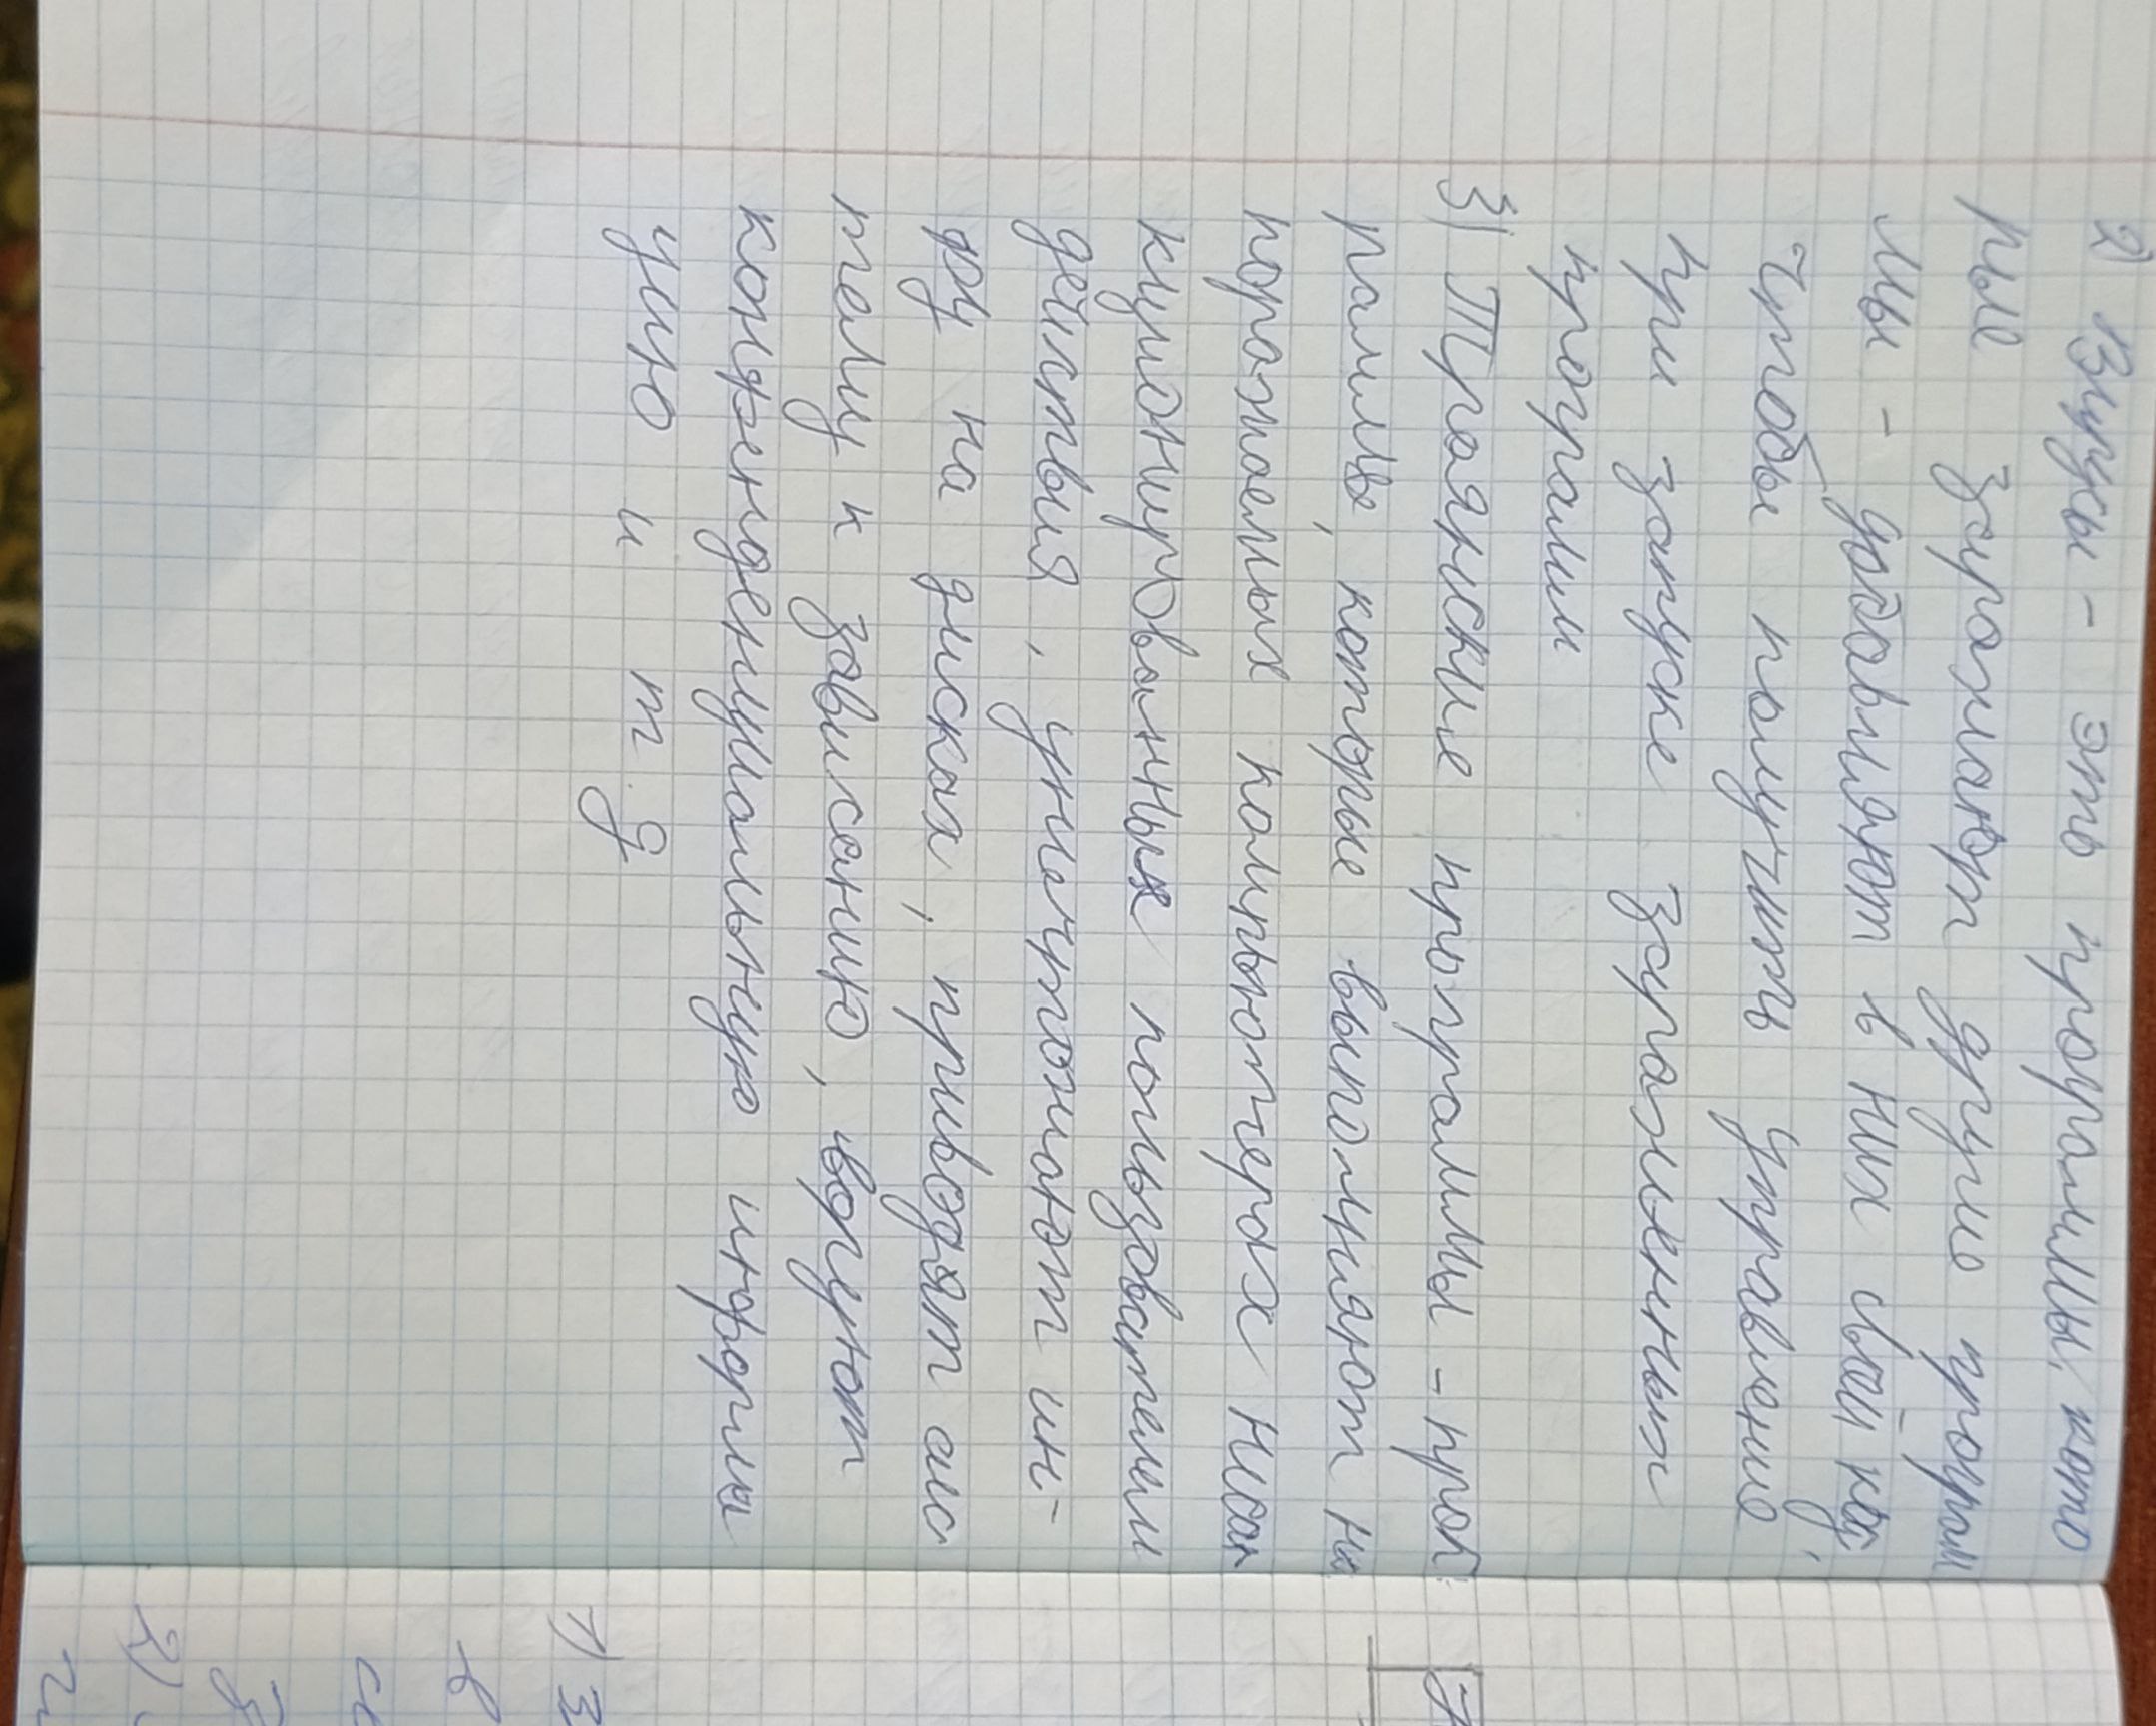 2) Вирусы - это программы, кото
рые заражают другие програм
мы - добавляют в них свой код,
чтобы получить управление
при запуске зараженных
программ
3) Троянские программы - прог
раммы, которые выполняют на
поражаемых компьютерах несан
кционированных пользователем
действия, уничтожают ин-
фу на дисках, приводят сис
тему к зависанию, воруют
конфенденциальную информа
цию и т.д
1) З
в
2)